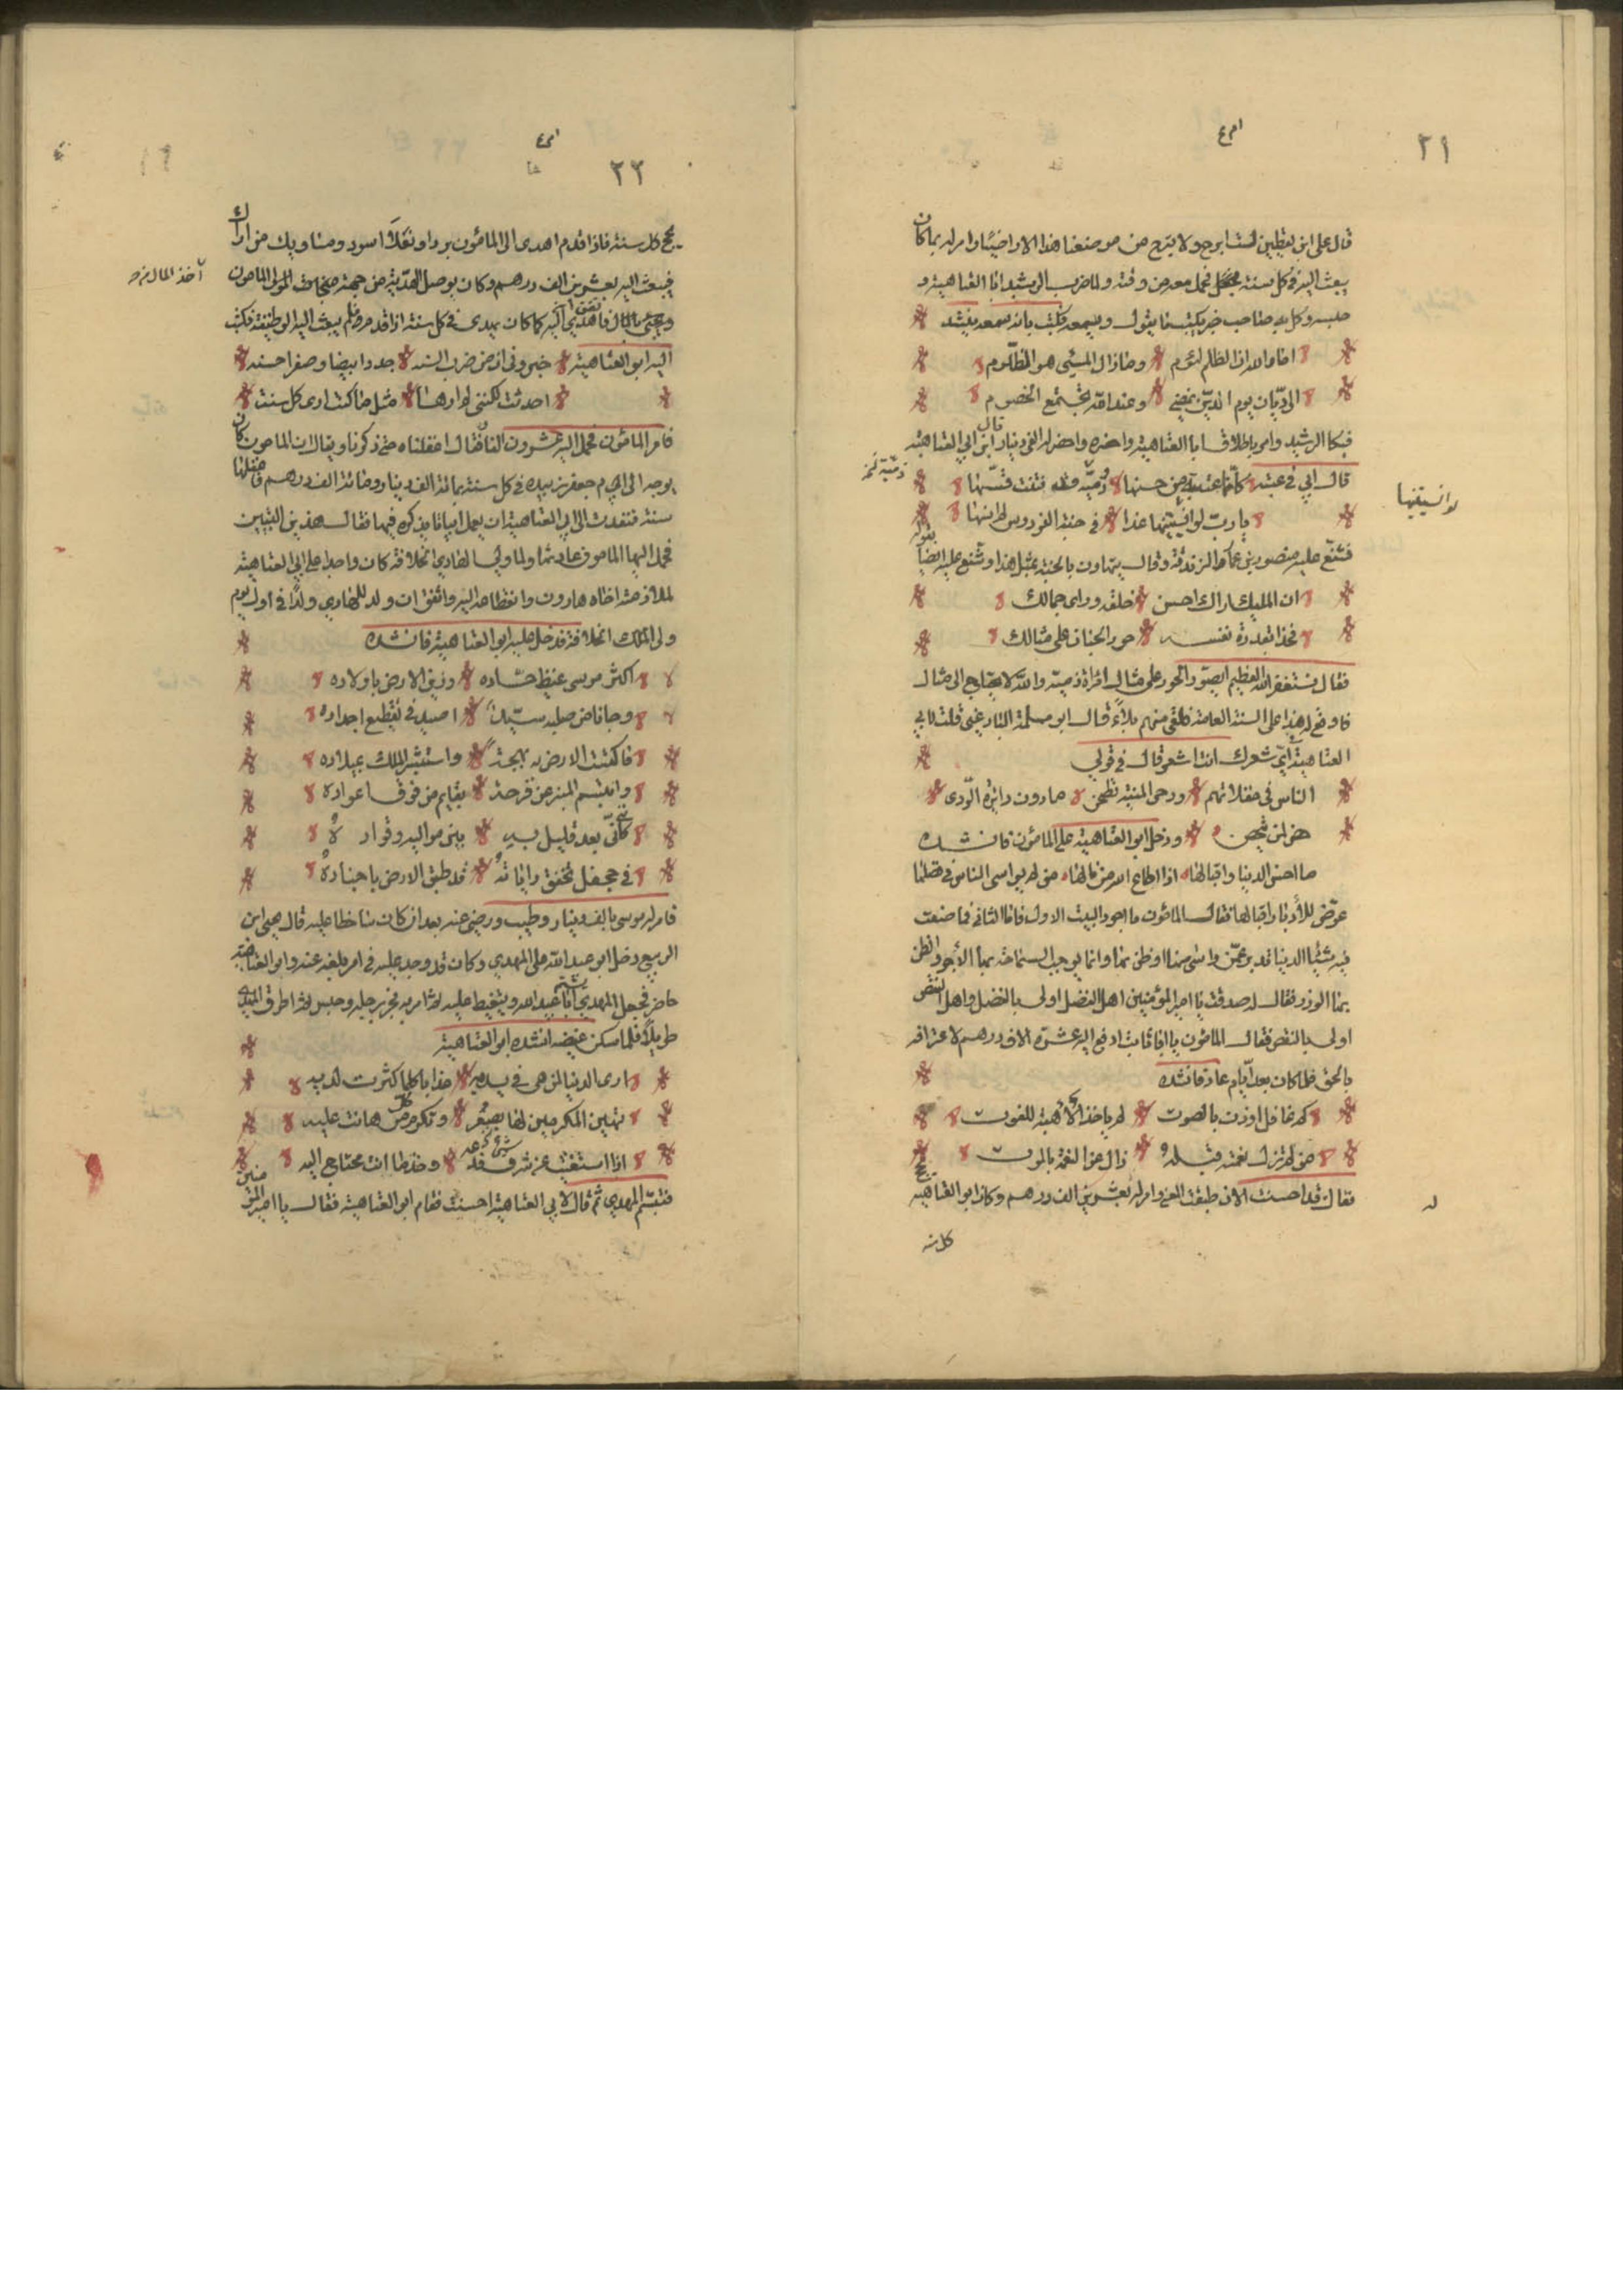 ٢١
قال علي ابن يقطين لست ابرح ولا يبرح من موضعنا هذا الا راضيًا وامر له بما كان
يبعث اليه في كل سنة فحمل معه من وقته ولما ضرب الرشيد ابا العتاهية و
حبسه وكل به صاحب خبر يكتب بما يقول ويسمعه فكتب بانه سمعه ينشد
اما والله ان الظلم لؤم وما زال المسيئ هو الظلوم
الى ديان يوم الدين نمضي وعند الله تجتمع الخصوم
فبكا الرشيد وامر باطلاق ابا العتاهية واحضره واحضر له الفي دينار قال ابن ابي العتاهية
قال ابي في عتبة كانما عتابة من حسنها دمية قس فتنت قسها
يا رب لو انسيتنيها غدا في جنة الفردوس لم انسها
لو انسيتنيها
فشنع عليه منصور بن عمار الزندقة وقال يتهاون بالجنة بمثل هذا وشنع عليه ايضا بقوله
ان المليك اراك احسن خلقه وراى جمالك
فحذا بقدرة نفسه حور الجنان على مثالك
فقال نستغفر الله العظيم ايصور الحور على مثال امرأة ذمية والله لا يحتاج الى مثال
فاوقع له هذا على السنة العامة فلقي منهم بلاءً قال ابو مسلمة قلت لابي
العتاهية اي شعرك انت اشعر قال في قولي
الناس في غفلاتهم ورحى المنية تطحن هارون دائرة الردى
ودخل ابو العتاهية على المامون فانشده
ما احسن الدنيا واقبالها اذا اطاع الله من نالها من لم يواسي الناس في فضلها
عرض للأدبار اقبالها فقال المامون ما اجود البيت الاول فاما الثاني فما صنعت
فيه شيئا الدنيا قد عمن واسى منها او ظن بها وانما يوجب السماحة بها الأجر والظن
بها الوزر فقال له صدقت يا امير المؤمنين اهل الفضل اولى بالفضل واهل النقص
اولى بالنقص فقال المامون يا ادفع اليه عشرة الاف درهم لاعترافه
بالحق فلما كان بعد ايام عاد فانشده
كم غافل اوذن بالصوت لم ياخذ الاهبة للفوت
من لم تزل نعمته قبله زال عن النعمة بالموت
فقال قد احسنت الان طبقت المعنى وامر له بعشرين الف درهم وكان ابو العتاهية يحج
كل سنة
٢٢
يحج كل سنة فاذا قدم اهدى الى المامون بردا ونعلا اسود ومساويك من اراك
فيبعث اليه بعشرين الف درهم وكان يوصل الهدية من جهته منجاب المولى المامون
ويجئ بالمال فاهدى اليه كما كان يهدي في كل سنة اذا قدم مرة فلم يبعث اليه الوظيفة فكتب
اليه ابو العتاهية خبروني ان من ضرب السنه جددا بيضا وصفرا حسنه
احدثت لكنني لم ارها مثل ما كنت ارى كل سنة
فامر المامون فحمل اليه عشرون الفا فقال اغفلناه حتى ذكرنا ويقال ان المامون كان
يوجه الى ام جعفر زبيدة في كل سنة بمائة الف دينار ومائة الف درهم فاغفلها
سنة فتقدت الى ابي العتاهية ان يعمل ابياتا يذكره فيها فقال هذين البيتين
فحمل اليها المامون عادتها ولما ولي الهادي الخلافة كان واجدا على ابي العتاهية
لملازمته اخاه هارون وانقطاعه اليه واتفق ان ولد للهادي ولدا في اول يوم
ولى الملك الخلافة فدخل عليه ابو العتاهية فانشده
اكثر موسى غيظ حساده وزين الارض باولاده
وجانا من صلبه سيد اصيد في تقطيع اجداده
فاكتست الارض به بهجة واستبشر الملك بميلاده
وابتسم المنبر عن فرحة بقايم من فوق اعواده
كانني بعد قليل به بين مواليه وقواده
في حجفل تخفق راياته قد طبق الارض باجناده
فامر له موسى بالف دينار وطيب ورضي عنه بعد ان كان ساخطا عليه قال يحيى ابن
الربيع دخل ابو عبيد الله على المهدي وكان قد وجد عليه في امر بلغه عنه وابو العتاهية
حاضر فجعل المهدي يشتم ابا عبيد الله ويتغيظ عليه ثم امر به فجر برجله وحبس ثم اطرق المهدي
طويلا فلما سكن غيضه انشده ابو العتاهية
ارى الدنيا لمن هي في يديه عذابا كلما كثرت لديه
تهين المكرمين لها بصغر وتكرم كل من هانت عليه
اذا استغنيت عن شئ فدعه وخذ ما انت محتاج اليه
فتبسم المهدي ثم قال لابي العتاهية احسنت فقام ابو العتاهية فقال يا امير المؤمنين